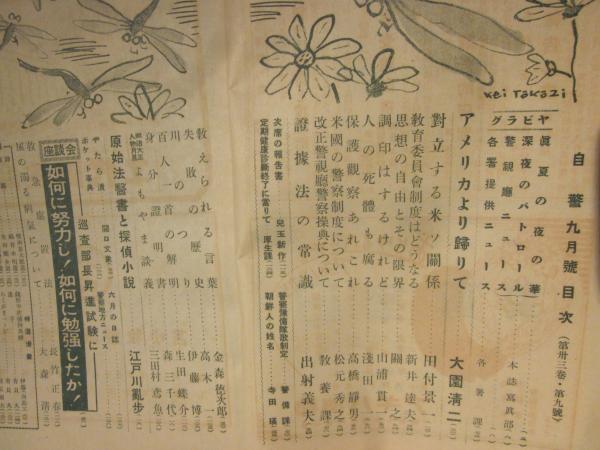 自警九月號目次(第卅三卷・第九號)
グラビヤ
眞夏の夜の華
深夜のパトロール
警視廳ニュース
本誌寫眞部
各署提供ニュース
各署課
アメリカより歸りて 大園清二
對立する米ソ關係 田付景一
教育委員會制度はどうなる 新井達夫
思想の自由とその限界 關之
調印はするけれど 山浦貫一
人の死體も腐る 淺田一
保護觀察あれこれ 高橋靜男
米國の警察制度について 松元秀之
改正警視廳警察操典について 教養課
證據法の常識 出射義夫
次席の報告書 兒玉新作
定期健康診斷終了に當りて 厚生課
警察豫備隊歌制定 警備課
朝鮮人の姓名 寺田瑛
教えられる言葉 金森德次郎
失敗の歷史 高木
川のつり 伊藤博
百人一首の解明 生田蝶介
身分證明書 森三千代
よもやま談義 三田村鳶魚
原始法醫書と探偵小說 江戸川亂步
やたら漬 關口文象
六月の日誌
ポケット事典
警察地方ニュース
巡査部長昇進試驗に
座談会
如何に努力し!如何に勉强したか!
救急處置法 長竹正春
夏の濁る病氣について 大森清
Kei Takazi